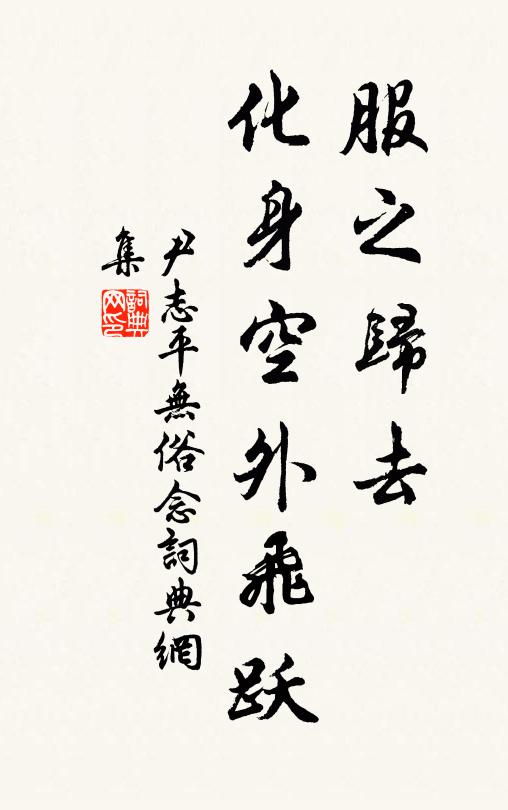 服之歸去
化身空外飛跃
尹志平無俗念詞典網
集
詞典
网印